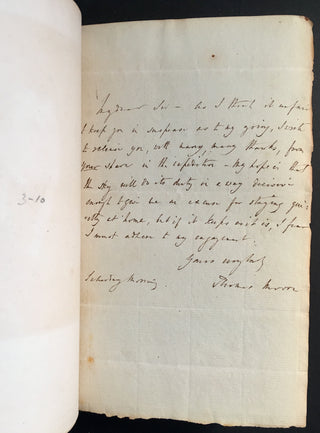 My dear Sir – As I think it unfair
to keep you in suspense as to my going, I wish
to release you, with many, many thanks, from
your share in the expedition – My hope is that
the sky will do its duty in a way decisive
enough to give me an excuse for staying qui-
etly at home, but if it keeps as it is, I fear
I must adhere to my engagement.
Yours very truly
Saturday Morning. Thomas Moore
3-10